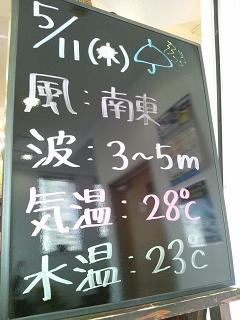 5/11(木)
風：南東
波：3~5m
気温：28℃
水温：23℃